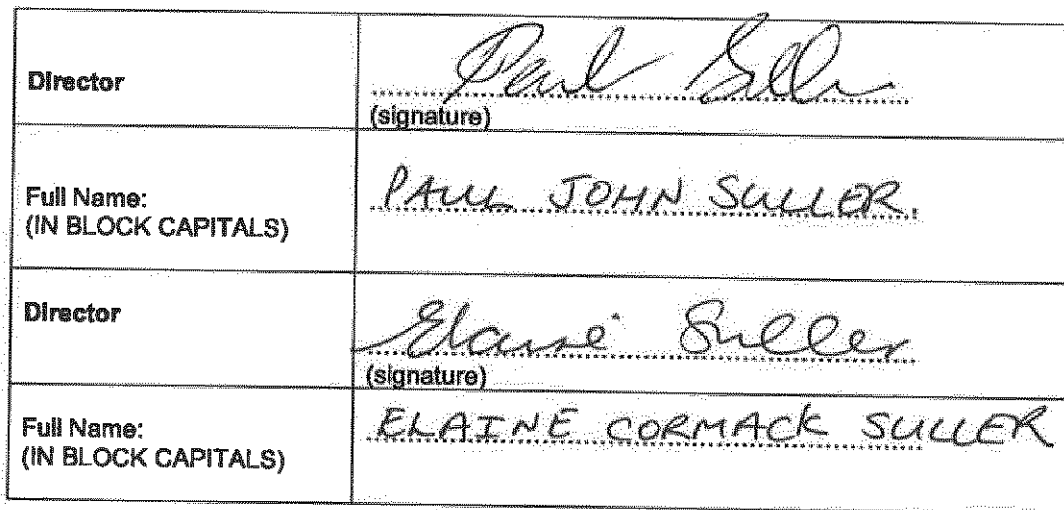 Director
Paul Suller
(signature)
Full Name:
(IN BLOCK CAPITALS)
PAUL JOHN SULLER.
Director
Elaine Suller
(signature)
Full Name:
(IN BLOCK CAPITALS)
ELAINE CORMACK SULLER